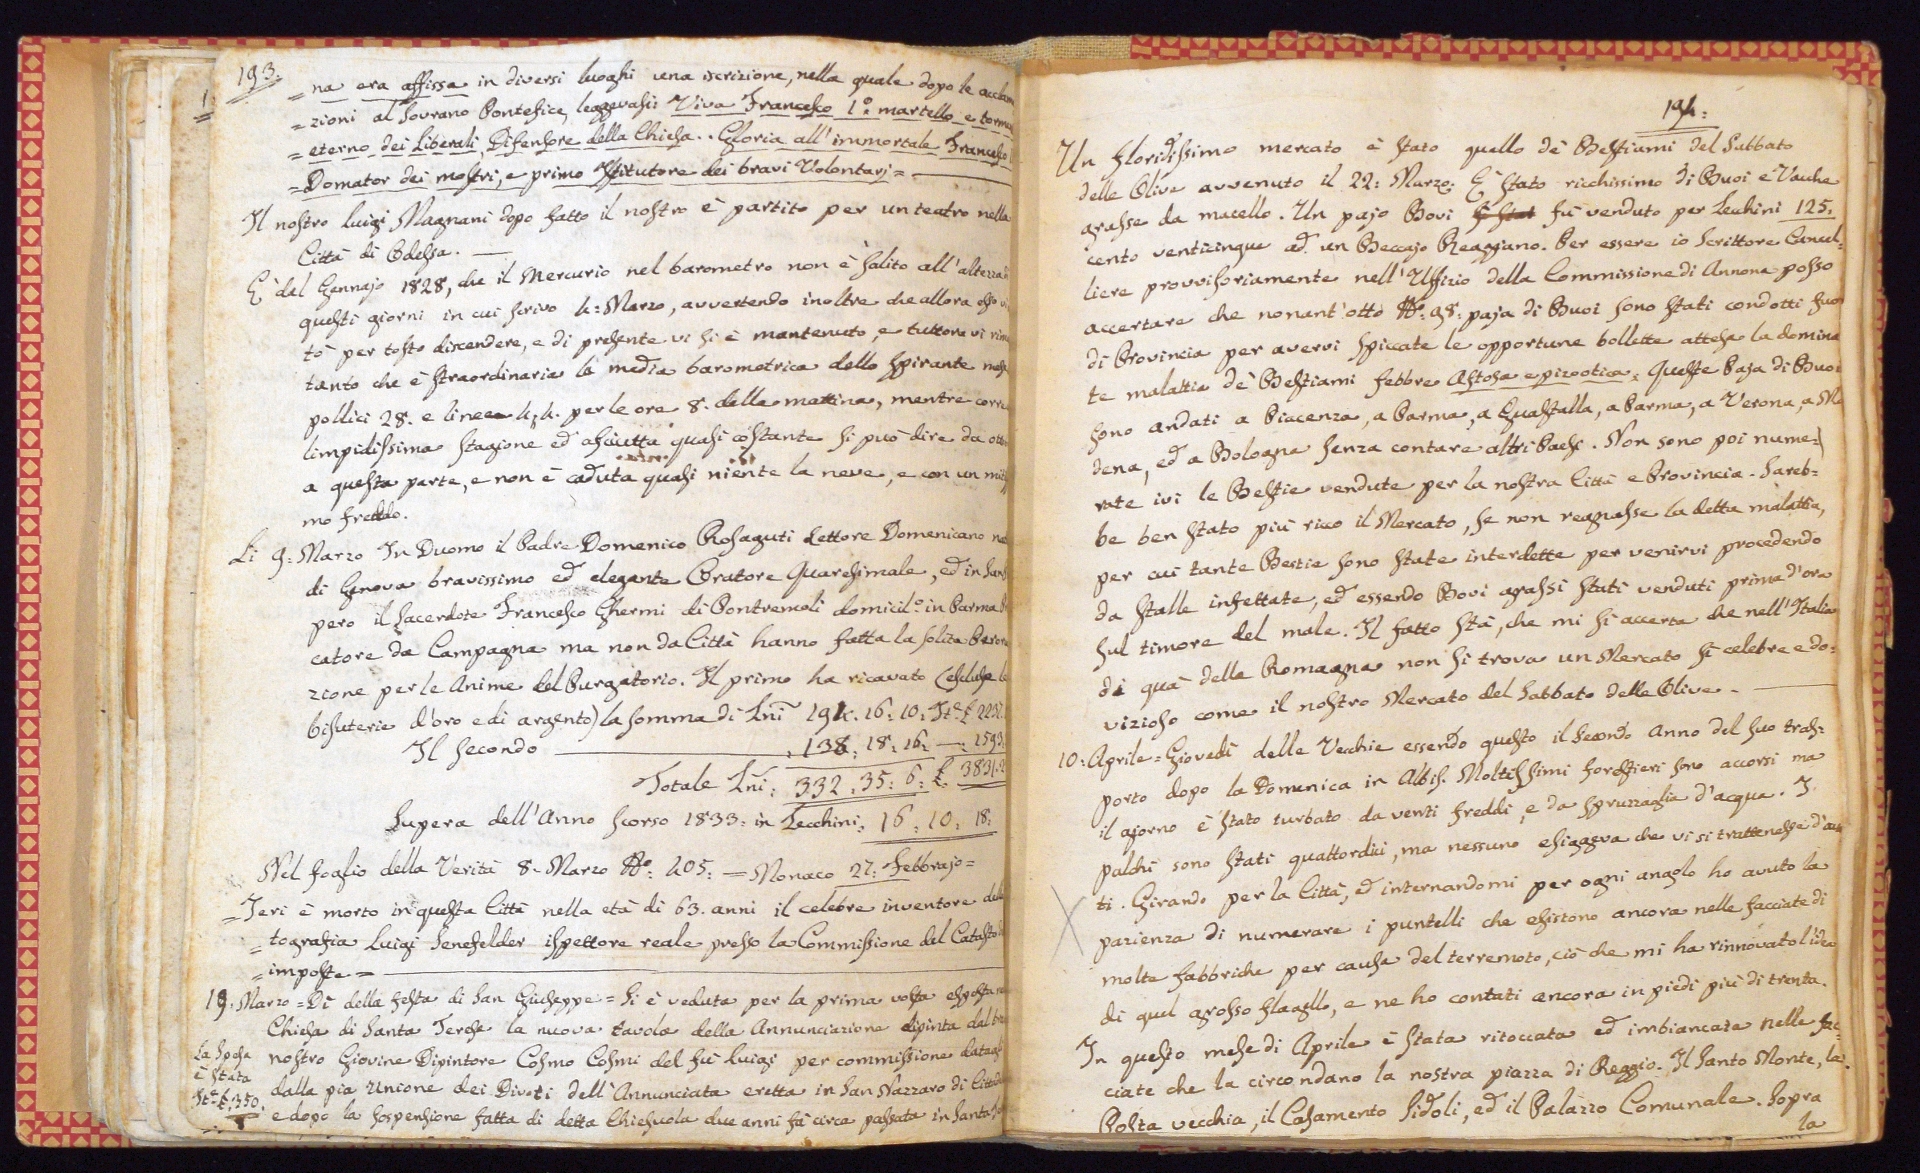 193.
= na era affissa in diversi luoghi una iscrizione, nella quale dopo le acclama
= zioni al Sovrano Pontefice, leggevasi: Viva Francesco 1.° martello e tormen
= eterno dei Liberali, Difensore della Chiesa.. Gloria all'immortale Francesco
= Domator dei mostri, e primo Istitutore dei bravi Volontarj =
Il nostro Luigi Magnani dopo fatto il nostro è partito per un teatro nella
Città di Odessa.
E' dal Gennajo 1828, che il Mercurio nel barometro non è salito all'altezza
questi giorni in cui scrivo 4: Marzo, avvertendo inoltre che allora esso vi
tò per tosto discendere, e di presente vi si è mantenuto, e tuttora vi rim
tanto che è straordinaria la media barometrica dello spirante mese
pollici 28. e linee 4,4. per le ore 8. della mattina, mentre corre
limpidissima stagione ed asciutta quasi costante si può dire da otto
a questa parte, e non è caduta quasi niente la neve, e con un mitis
mo freddo.
Li 9: Marzo In Duomo il Padre Domenico Rosaguti Lettore Domenicano
di Genova bravissimo ed elegante Oratore Quaresimale, ed in San
pero il Sacerdote Francesco Ghermi di Pontremoli domicil.° in Parma
catore da Campagna ma non da Città hanno fatta la solita Perora
zione per le Anime del Purgatorio. Il primo ha ricavato (escluse le
bisuterie d'oro e di argento) la somma di Zni 194. 16: 10: It.e £ 2237.
Il secondo 138. 18: 16. — : 1593:
Totale Zni: 332. 35: 6: £: 3831.2
Supera dell'Anno scorso 1833: in Zecchini: 16. 10: 18:
Nel foglio della Verità 8. Marzo N.° 405: = Monaco 27: Febbrajo =
= Ieri è morto in questa Città nella età di 63. anni il celebre inventore della
= tografia Luigi Senefelder ispettore reale presso la Commissione del Catasto
= imposte =
19. Marzo = Dì della festa di San Giuseppe = Si è veduta per la prima volta esposta
Chiesa di Santa Terese la nuova tavola della Annunciazione dipinta dal
La Spesa
è stata
It.e £. 350:
nostro Giovine Dipintore Cosmo Cosmi del fù Luigi per commissione datagli
dalla pia Unione dei Divoti dell'Annunciata eretta in San Nazzaro di Cittade
e dopo la sospensione fatta di detta Chiesuola due anni fà circa passata in Santa
1.
194:
Un floridissimo mercato è stato quello de' Bestiami del Sabbato
delle Olive avvenuto il 22: Marzo: E' stato ricchissimo di Buoi e Vacche
grasse da macello. Un pajo Bovi fù venduto per Zecchini 125:
cento venticinque ad un Beccajo Reggiano. Per essere io Scrittore Cancel=
liere provvisoriamente nell'Uffizio della Commissione di Annona posso
accertare che nonant'otto N.° 98: paja di Buoi sono stati condotti fuor
di Provincia per avervi spiccate le opportune bollette attesa la dominan
te malattia de' Bestiami febbre Aftosa epizootica: Queste Paja di Buoi
sono andati a Piacenza, a Parma, a Guastalla, a Parma, a Verona, a Mo
dena, ed a Bologna senza contare altri Paesi. Non sono poi nume=
rate ivi le Bestie vendute per la nostra Città e Provincia. Sareb=
be ben stato più ricco il Mercato, se non regnasse la detta malattia,
per cui tante Bestie sono state interdette per venirvi procedendo
da Stalle infettate, ed essendo Bovi grassi stati venduti prima d'ora
sul timore del male. Il fatto stà, che mi si accerta che nell'Italia
di quà della Romagna non si trova un Mercato sì celebre e do=
vizioso come il nostro Mercato del Sabbato delle Olive.
10: Aprile = Giovedì delle Vecchie essendo questo il secondo anno del suo tras=
porto dopo la Domenica in Albis. Moltissimi forestieri sono accorsi ma
il giorno è stato turbato da venti freddi, e da spruzzaglia d'acqua. I
palchi sono stati quattordici, ma nessuno esiggeva che vi si trattenesse d'avan
ti. Girando per la Città, ed internandomi per ogni angolo ho avuto la
pazienza di numerare i puntelli che esistono ancora nelle facciate di
molte fabbriche per causa del terremoto, ciò che mi ha rinnovato l'idea
di quel grosso flagello, e ne ho contati ancora in piedi più di trenta.
In questo mese di Aprile è stata ritoccata ed imbiancata nelle fac=
ciate che la circondano la nostra piazza di Reggio. Il Santo Monte, la
Posta vecchia, il Casamento Sidoli, ed il Palazzo Comunale. Sopra
la